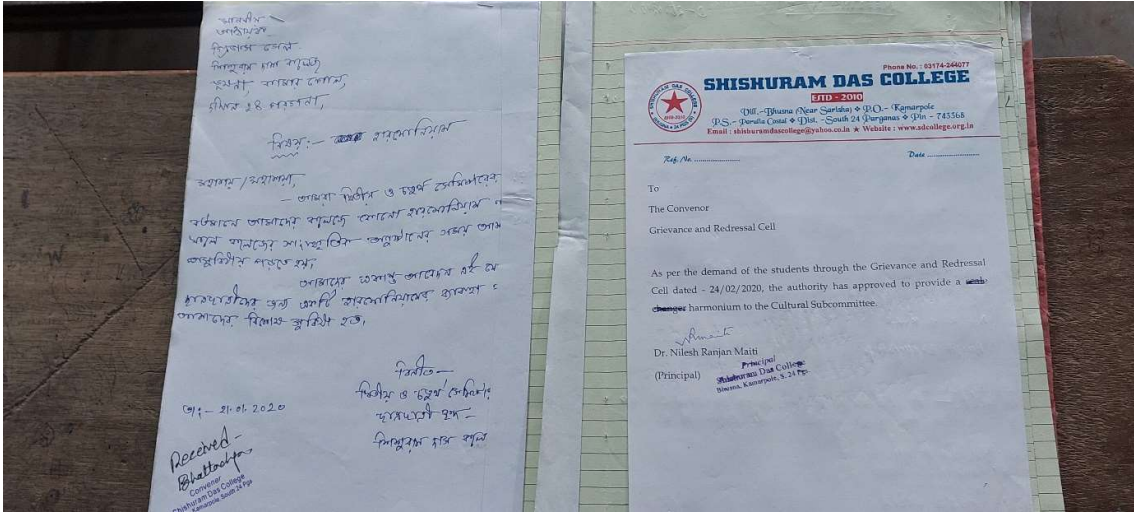 মাননীয়
আহ্বায়ক
শিশুরাম দাস কলেজ
ভূষনা, কামার পোল,
দক্ষিন ২৪ পরগনা,
বিষয়:- হারমোনিয়াম
মহাশয়/মহাশয়া,
- আমরা দ্বিতীয় ও চতুর্থ সেমিস্টারের
বর্তমানে আমাদের কলেজে কোনো হারমোনিয়াম ন
কলেজের সাংস্কৃতিক অনুষ্ঠানের সময় আম
অসুবিধায় পড়তে হয়,
আমাদের একান্ত আবেদন এই যে
ছাত্রছাত্রীদের জন্য একটি হারমোনিয়ামের ব্যবস্থা
আমাদের বিশেষ সুবিধা হত,
বিনীত-
দ্বিতীয় ও চতুর্থ সেমিস্টার
ছাত্রছাত্রী বৃন্দ-
শিশুরাম দাস কলে
তাং:- 21.01.2020
Received-
Bhattacharya
Convener
Shishuram Das College
Kamarpole South 24 Pgs
Phone No. : 03174-244077
SHISHURAM DAS COLLEGE
ESTD - 2010
Vill.-Bhusna (Near Sarisha) ❖ P.O.- Kamarpole
P.S.- Parulia Costal ❖ Dist. -South 24 Parganas ❖ Pin - 743368
Email : shishuramdascollege@yahoo.co.in ★ Website : www.sdcollege.org.in
Ref. No. ....................
Date ....................
To
The Convenor
Grievance and Redressal Cell
As per the demand of the students through the Grievance and Redressal
Cell dated - 24/02/2020, the authority has approved to provide a
changer harmonium to the Cultural Subcommittee.
Dr. Nilesh Ranjan Maiti
(Principal)
Principal
Shishuram Das College
Bhusna, Kamarpole, S. 24 Pgs.